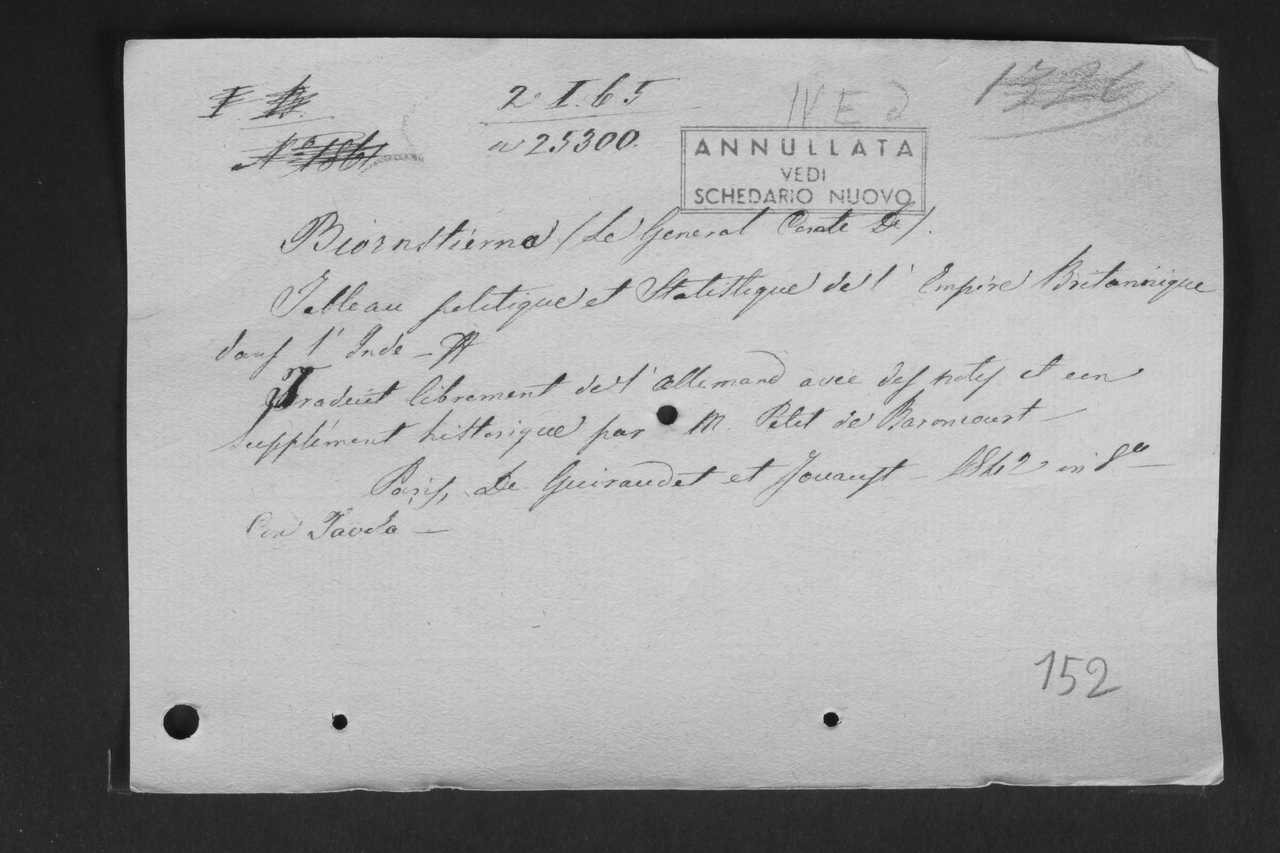 2 I. 6 5
IV E d
1726
N° 1861
n 25300.
ANNULLATA
VEDI
SCHEDARIO NUOVO
Biornstierna (Le General Comte De).
Tableau politique et Statistique de l' Empire Britannique
dans l' Inde -
Traduit librement de l' allemand avec des notes et un
supplément historique par M. Petit de Baroncourt -
Paris, De Guiraudet et Jouaust - 1842 in 8°-
Con Tavola -
152